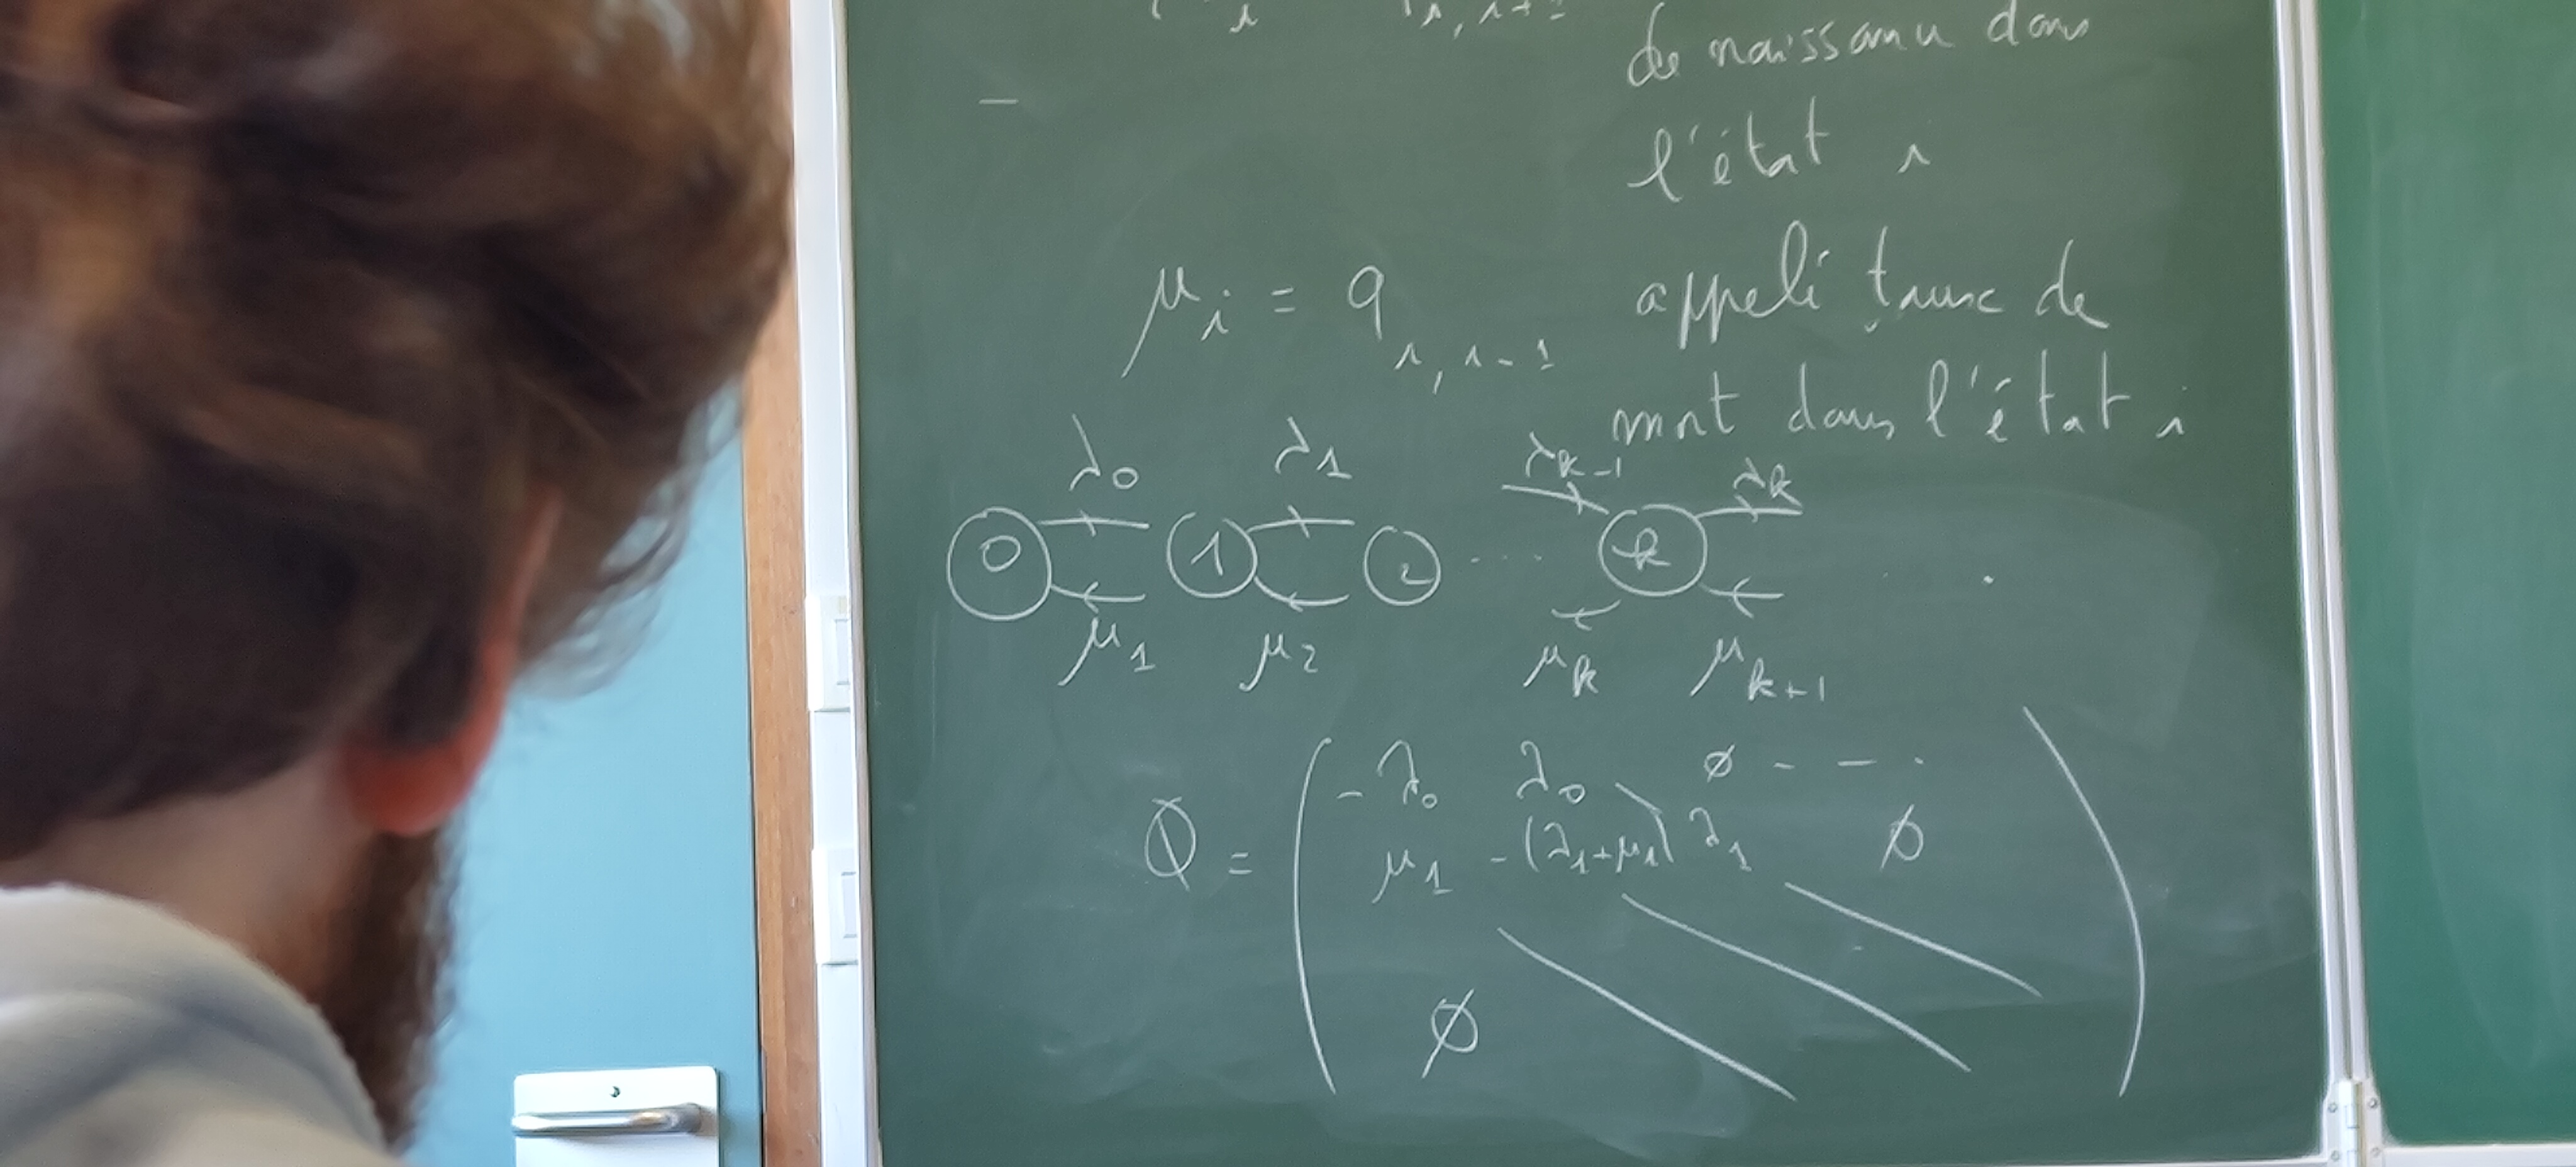 i i, i+1
de naissance dans
l'état i
μi = q i, i-1
appelé taux de
mort dans l'état i
λ0 λ1 λk-1 λk
0 1 2 .... k . .
μ1 μ2 μk μk+1
-λ0 λ0 0 - - .
Q = μ1 -(λ1+μ1) λ1 0
0